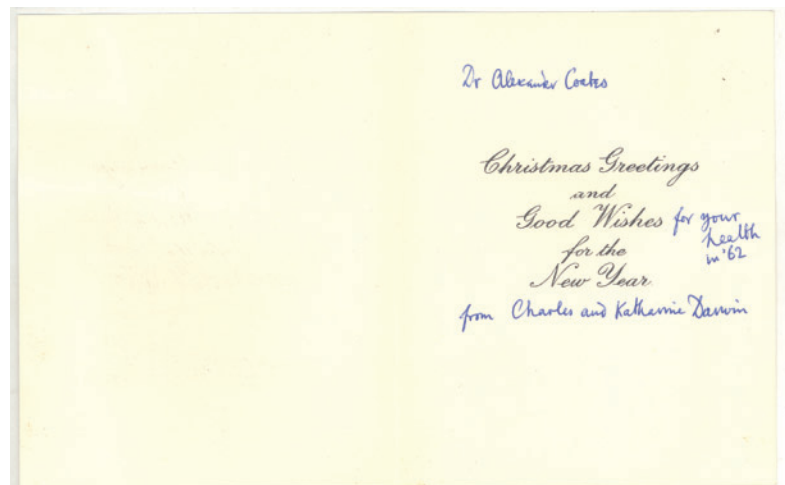 Dr Alexander Coates
Christmas Greetings
and
Good Wishes for your
health
in '62
for the
New Year
from Charles and Katharine Darwin